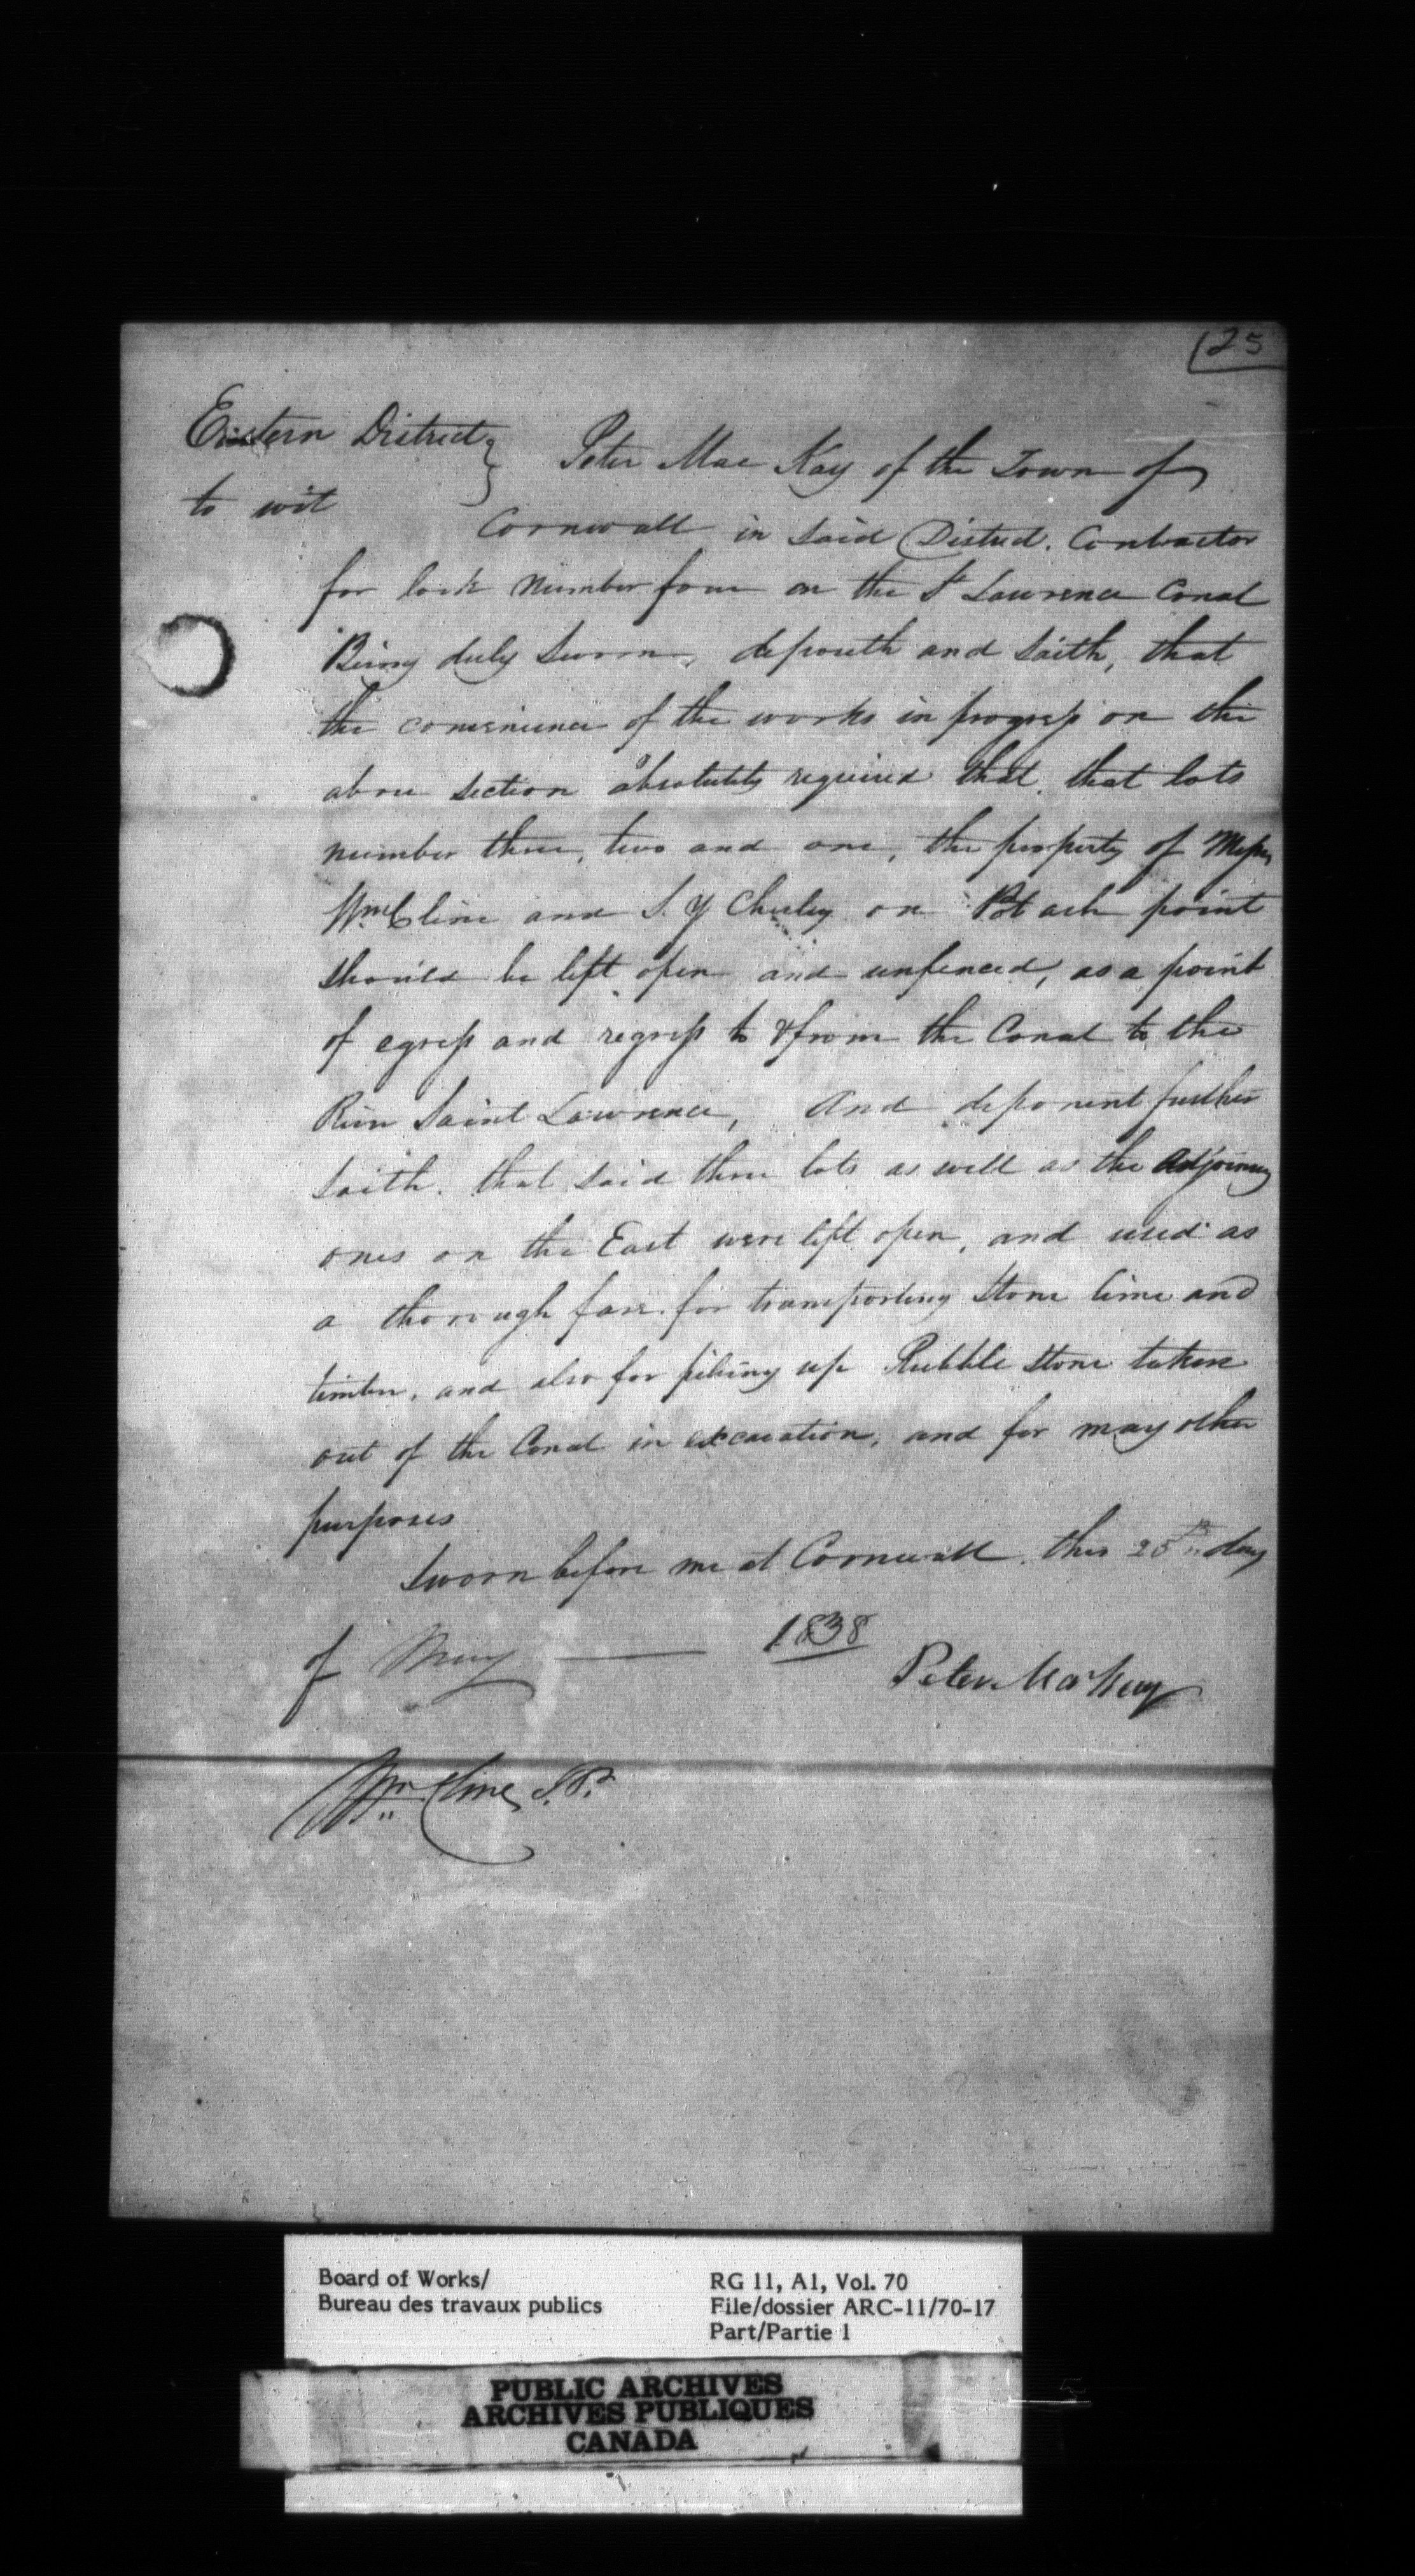 125
Eastern District }
to wit
Peter Mac Kay of the Town of
Cornwall in said District. Contractor
for lock number four on the St Lawrence Canal
Being duly sworn, deposeth and saith, that
the convenience of the works in progress on the
above section absolutely required that, that lots
number three, two and one, the property of Messrs
Wm Cline and S. Y Chesley on Pot ash point
should be left open and unfenced, as a point
of egress and regress to & from the Canal to the
River Saint Lawrence, And deponent further
saith. that said three lots as well as the adjoining
ones on the East were left open, and used as
a thorough fare for transporting Stone lime and
timber, and also for piling up Rubble stone taken
out of the Canal in excavation, and for many other
purposes
Sworn before me at Cornwall. this 25th day
of May — 1838
Peter MacKay
Wm Cline, J.P.
Board of Works/
Bureau des travaux publics
RG 11, A1, Vol. 70
File/dossier ARC-11/70-17
Part/Partie 1
PUBLIC ARCHIVES
ARCHIVES PUBLIQUES
CANADA